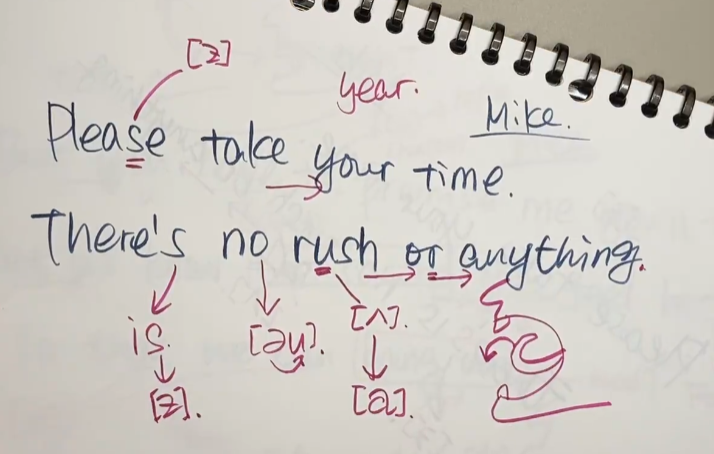 [z]
year.
Mike.
Please take your time.
There's no rush or anything.
is. [əu]. [ʌ].
[z]. [a].